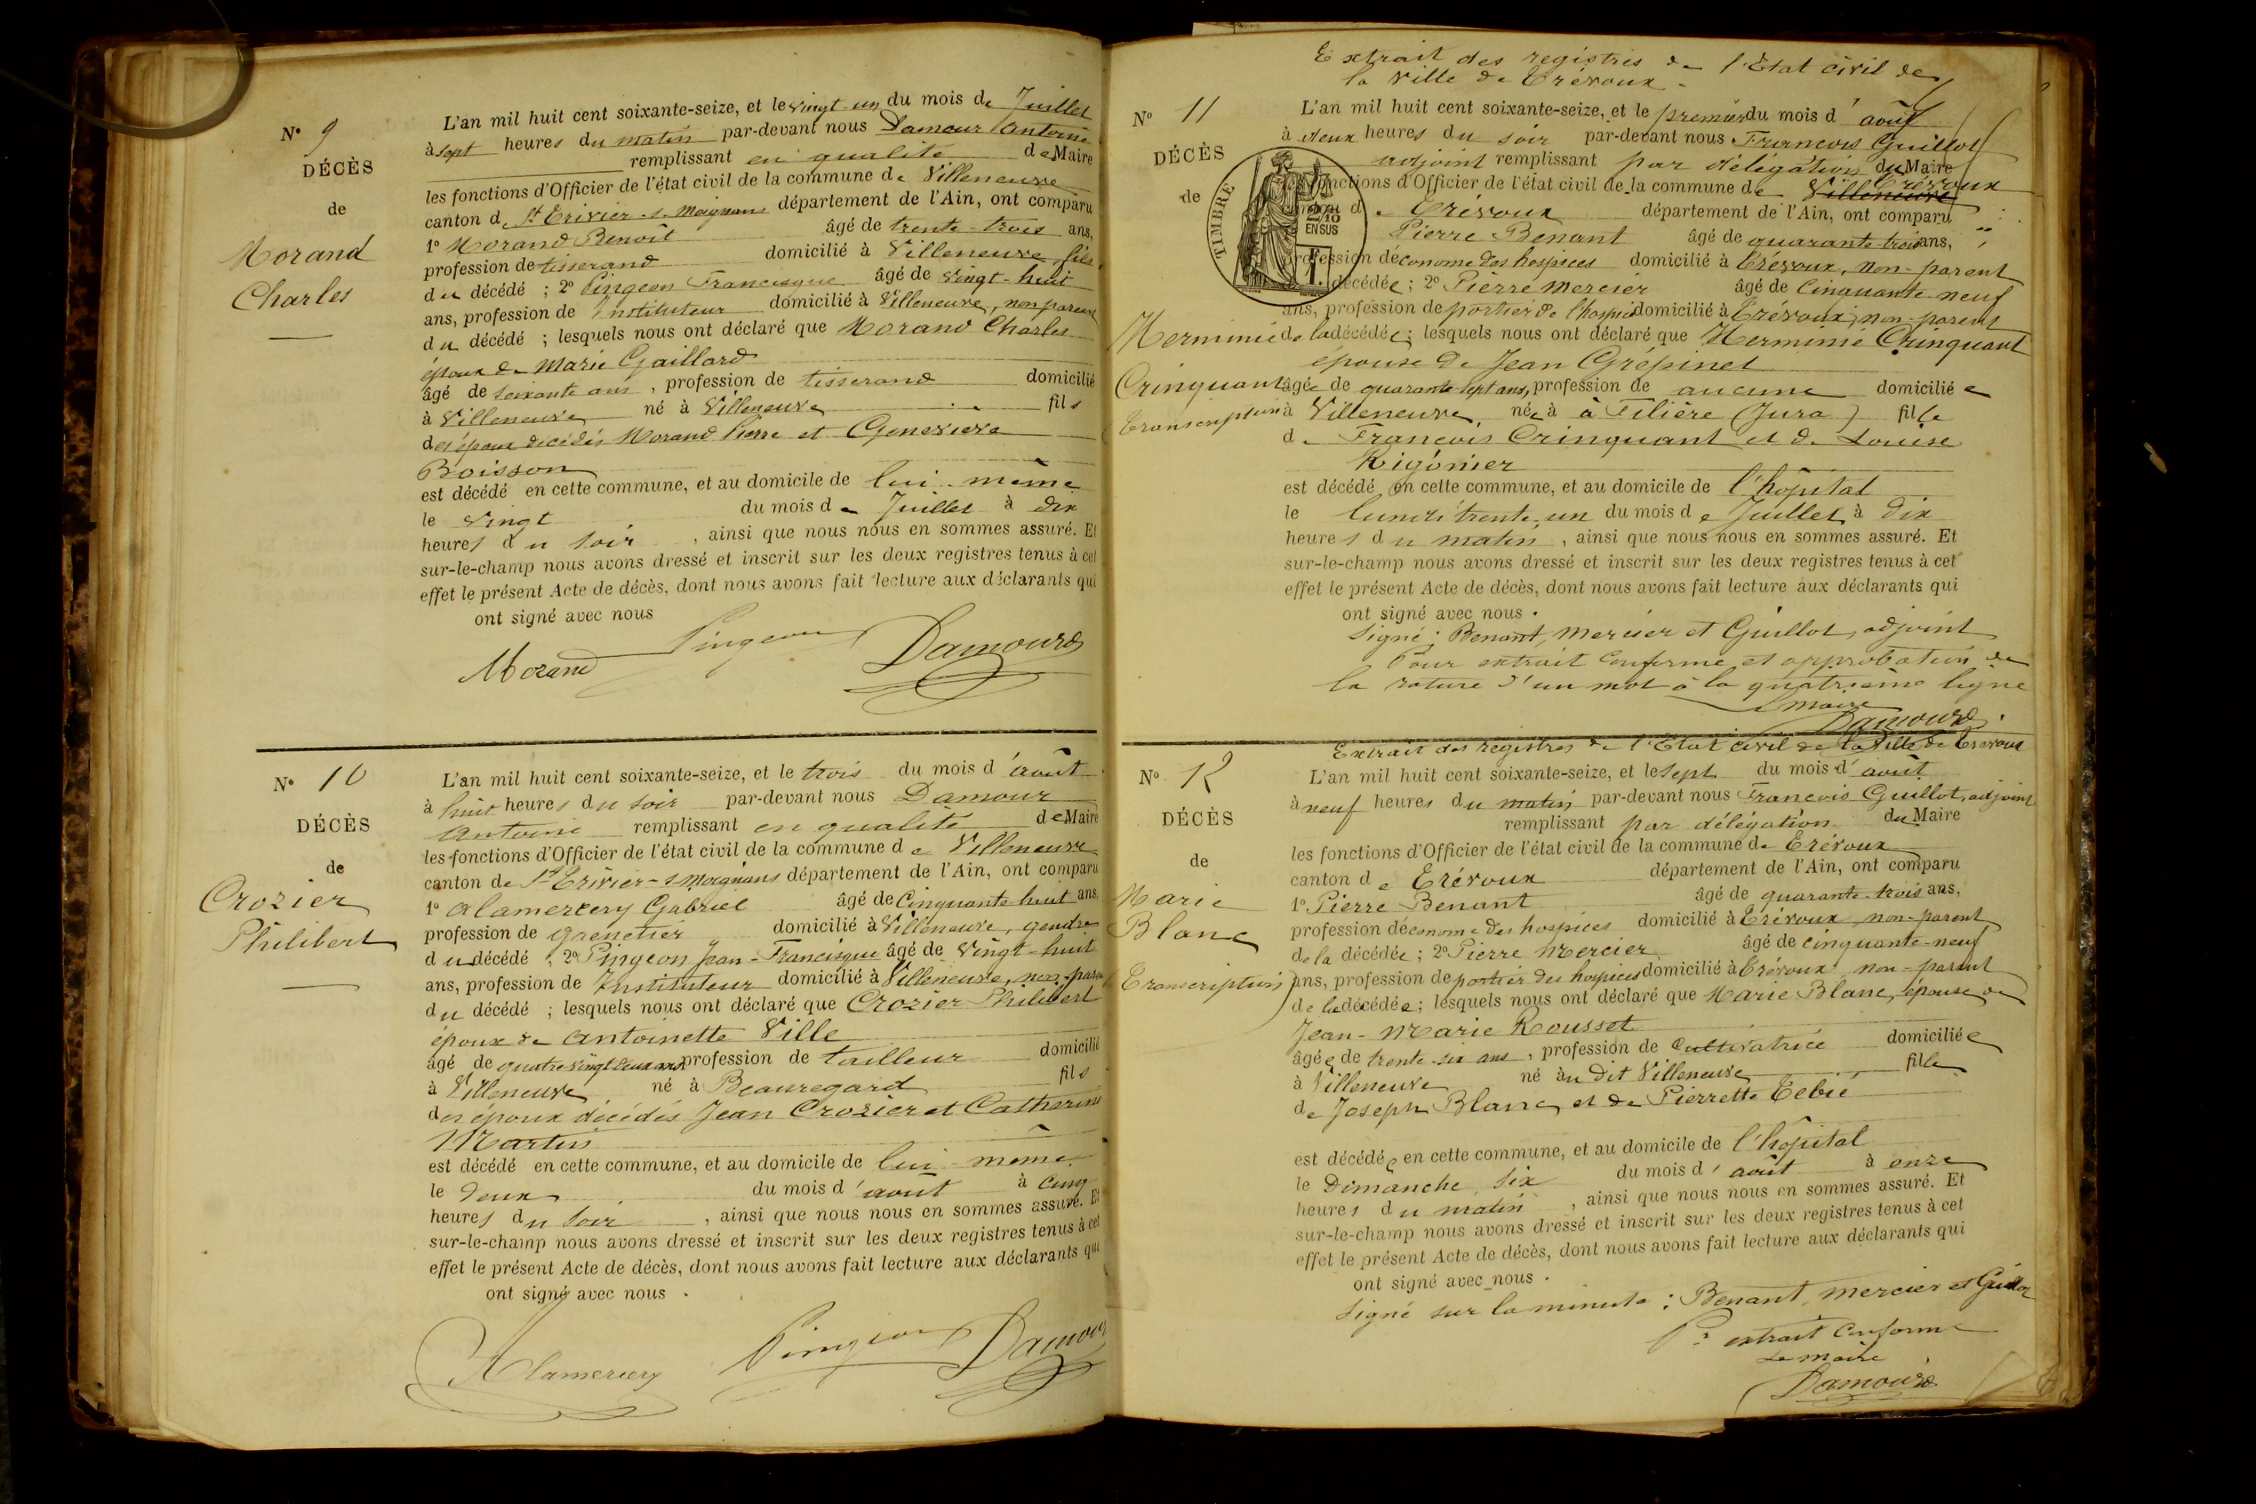 N° 9
DÉCÈS
de
Morand
Charles
L'an mil huit cent soixante-seize, et le vingt-un du mois de Juillet
à sept heures du matin par-devant nous Damour Antoine
remplissant en qualité de Maire
les fonctions d'Officier de l'état civil de la commune de Villeneuve
canton de St Trivier-s-Moignans département de l'Ain, ont comparu
1° Morand Benoît âgé de trente-trois ans,
profession de tisserand domicilié à Villeneuve, fils
du décédé ; 2° Pingeon Francisque âgé de vingt-huit
ans, profession de Instituteur domicilié à Villeneuve, non parent
du décédé ; lesquels nous ont déclaré que Morand Charles
époux de Marie Gaillard
âgé de soixante ans, profession de tisserand domicilié
à Villeneuve né à Villeneuve fils
des époux décédés Morand Pierre et Geneviève
Boisson
est décédé en cette commune, et au domicile de lui-même
le vingt du mois de Juillet à dix
heures du soir, ainsi que nous nous en sommes assuré. Et
sur-le-champ nous avons dressé et inscrit sur les deux registres tenus à cet
effet le présent Acte de décès, dont nous avons fait lecture aux déclarants qui
ont signé avec nous
Morand Pingeon Damour
N° 10
DÉCÈS
de
Crozier
Philibert
L'an mil huit cent soixante-seize, et le trois du mois d'août
à huit heures du soir par-devant nous Damour
Antoine remplissant en qualité de Maire
les fonctions d'Officier de l'état civil de la commune de Villeneuve
canton de St Trivier-s-Moignans département de l'Ain, ont comparu
1° Alamercery Gabriel âgé de cinquante-huit ans,
profession de grenetier domicilié à Villeneuve, gendre
du décédé ; 2° Pingeon Jean-Francisque âgé de vingt-huit
ans, profession de Instituteur domicilié à Villeneuve, non-parent
du décédé ; lesquels nous ont déclaré que Crozier Philibert
époux de Antoinette Ville
âgé de quatre vingt deux ans profession de tailleur domicilié
à Villeneuve né à Beauregard fils
des époux décédés Jean Crozier et Catherine
Martin
est décédé en cette commune, et au domicile de lui-même
le deux du mois d'août à cinq
heures du soir, ainsi que nous nous en sommes assuré. Et
sur-le-champ nous avons dressé et inscrit sur les deux registres tenus à cet
effet le présent Acte de décès, dont nous avons fait lecture aux déclarants qui
ont signé avec nous.
Alamercery Pingeon Damour
Extrait des registres de l'Etat civil de
la ville de Trévoux.
N° 11
DÉCÈS
de
TIMBRE
2/10
EN SUS
Herminie
Crinquant
Transcription
L'an mil huit cent soixante-seize, et le premier du mois d'août
à deux heures du soir par-devant nous Francois Guillot
adjoint remplissant par délégation du Maire
Trévoux
fonctions d'Officier de l'état civil de la commune de Villeneuve
canton de Trévoux département de l'Ain, ont comparu
Pierre Benant âgé de quarante-trois ans,
profession d'économe des hospices domicilié à Trévoux, non-parent
décédée ; 2° Pierre Mercier âgé de cinquante-neuf
ans, profession de portier de l'hospice domicilié à Trévoux, non-parent
de la décédée ; lesquels nous ont déclaré que Herminie Crinquant
épouse de Jean Grépinet
âgée de quarante-sept ans, profession de aucune domiciliée
à Villeneuve née à à Filière (Jura) fille
de Francois Crinquant et de Louise
Rigónier
est décédé en cette commune, et au domicile de l'hôpital
le lundi trente-un du mois de Juillet à dix
heures du matin, ainsi que nous nous en sommes assuré. Et
sur-le-champ nous avons dressé et inscrit sur les deux registres tenus à cet
effet le présent Acte de décès, dont nous avons fait lecture aux déclarants qui
ont signé avec nous.
Signé : Benant, Mercier et Guillot, adjoint
Pour extrait conforme et approbation de
la rature d'un mot à la quatrième ligne
Le maire
Damour
Extrait des registres de l'Etat civil de la Ville de Trévoux
N° 12
DÉCÈS
de
Marie
Blanc
Transcription
L'an mil huit cent soixante-seize, et le sept du mois d'août
à neuf heures du matin par-devant nous Francois Guillot, adjoint
remplissant par délégation du Maire
les fonctions d'Officier de l'état civil de la commune de Trévoux
canton de Trévoux département de l'Ain, ont comparu
1° Pierre Benant âgé de quarante-trois ans,
profession d'économe des hospices domicilié à Trévoux, non-parent
de la décédée ; 2° Pierre Mercier âgé de cinquante-neuf
ans, profession de portier des hospices domicilié à Trévoux non-parent
de la décédée ; lesquels nous ont déclaré que Marie Blanc, épouse de
Jean-Marie Rousset
âgée de trente-six ans, profession de Cultivatrice domiciliée
à Villeneuve né au dit Villeneuve fille
de Joseph Blanc et de Pierrette Tébié
est décédée en cette commune, et au domicile de l'hôpital
le Dimanche six du mois d'août à onze
heures du matin, ainsi que nous nous en sommes assuré. Et
sur-le-champ nous avons dressé et inscrit sur les deux registres tenus à cet
effet le présent Acte de décès, dont nous avons fait lecture aux déclarants qui
ont signé avec nous.
Signé sur la minute : Benant, Mercier et Guillot
Pr extrait conforme
Le maire
Damour